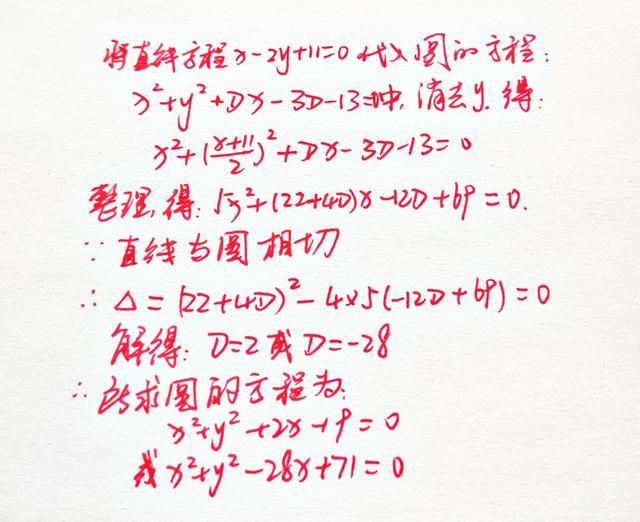 将直线方程x-2y+11=0代入圆的方程:
x²+y²+Dx-3D-13=0中,消去y,得:
x²+(\frac{x+11}{2})²+Dx-3D-13=0
整理,得:5x²+(22+4D)x-12D+69=0.
∵直线与圆相切
∴△=(22+4D)²-4×5(-12D+69)=0
解得:D=2或D=-28
∴所求圆的方程为:
x²+y²+2x-19=0
或x²+y²-28x+71=0